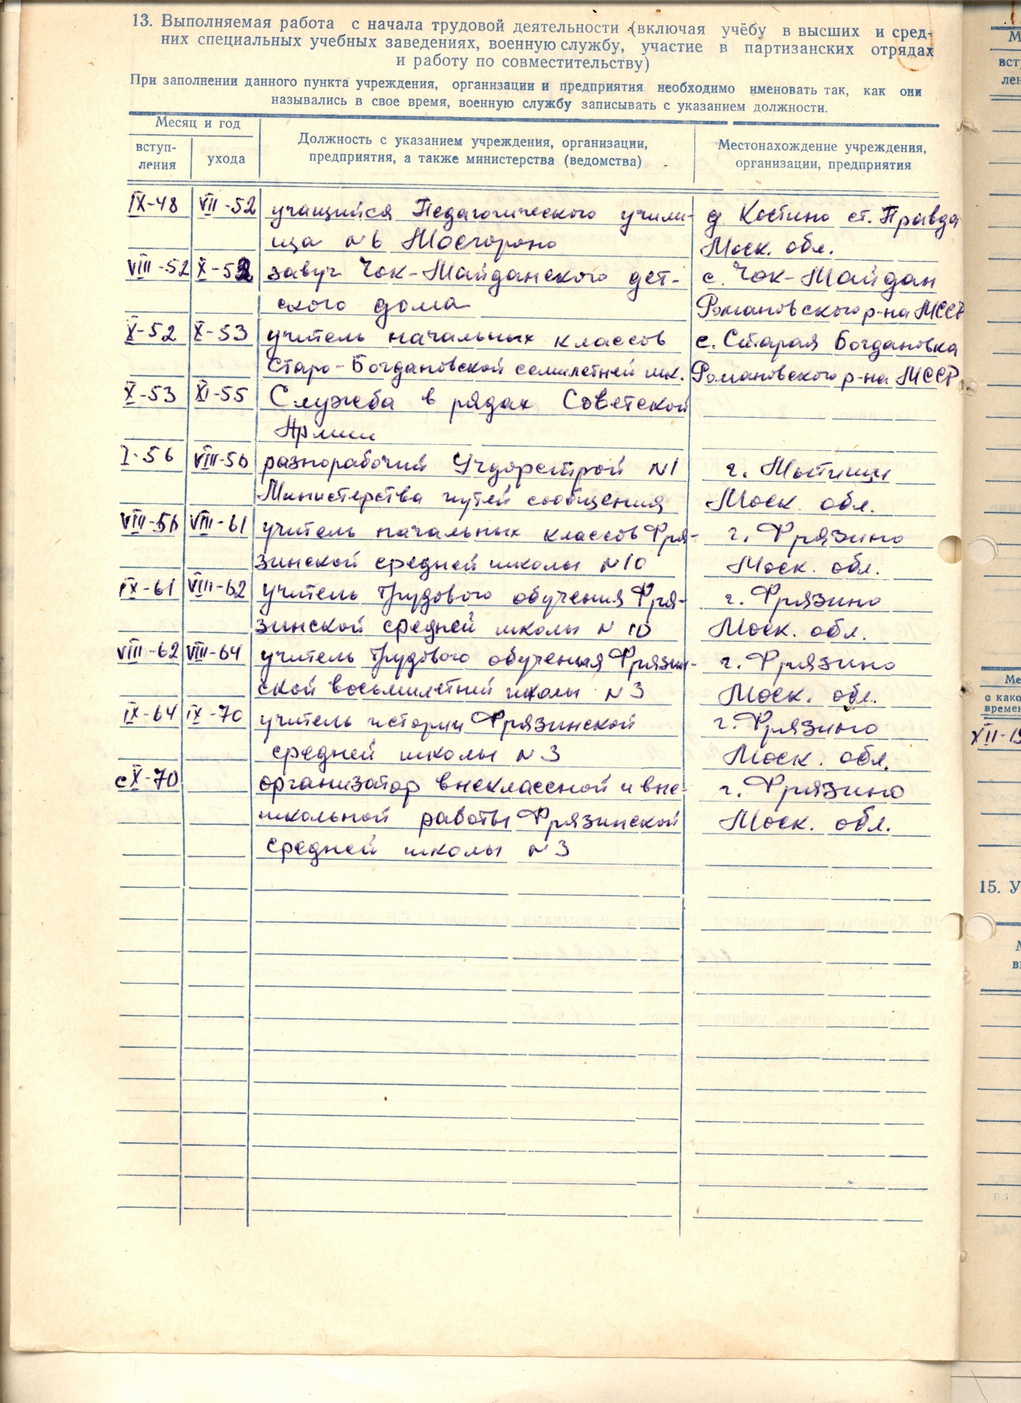 13. Выполняемая работа с начала трудовой деятельности (включая учёбу в высших и сред-
них специальных учебных заведениях, военную службу, участие в партизанских отрядах
и работу по совместительству)
При заполнении данного пункта учреждения, организации и предприятия необходимо именовать так, как они
назывались в свое время, военную службу записывать с указанием должности.
Месяц и год
вступ-
ления
ухода
Должность с указанием учреждения, организации,
предприятия, а также министерства (ведомства)
Местонахождение учреждения,
организации, предприятия
IX-48 VII-52 учащийся Педагогического учили- д. Костино ст. Правда
ща №6 Мосгороно Моск. обл.
VIII-52 X-52 завуч Чок-Майданского дет- с. Чок-Майдан
ского дома Романовского р-на МССР
X-52 X-53 учитель начальных классов с. Старая Богдановка
Старо-Богдановской семилетней шк. Романовского р-на МССР
X-53 XI-55 Служба в рядах Советской
Армии
I-56 VIII-56 разнорабочий Стройтрест №1 г. Мытищи
Министерства путей сообщения Моск. обл.
VIII-56 VIII-61 учитель начальных классов Фря- г. Фрязино
зинской средней школы №10 Моск. обл.
IX-61 VIII-62 учитель трудового обучения Фря- г. Фрязино
зинской средней школы №10 Моск. обл.
VIII-62 VIII-64 учитель трудового обучения Фрязин- г. Фрязино
ской восьмилетней школы №3 Моск. обл.
IX-64 IX-70 учитель истории Фрязинской г. Фрязино
средней школы №3 Моск. обл.
с X-70 организатор внеклассной и вне- г. Фрязино
школьной работы Фрязинской Моск. обл.
средней школы №3
М
вст
лен
Ме
с како
времен
XII-19
15. У
М
в